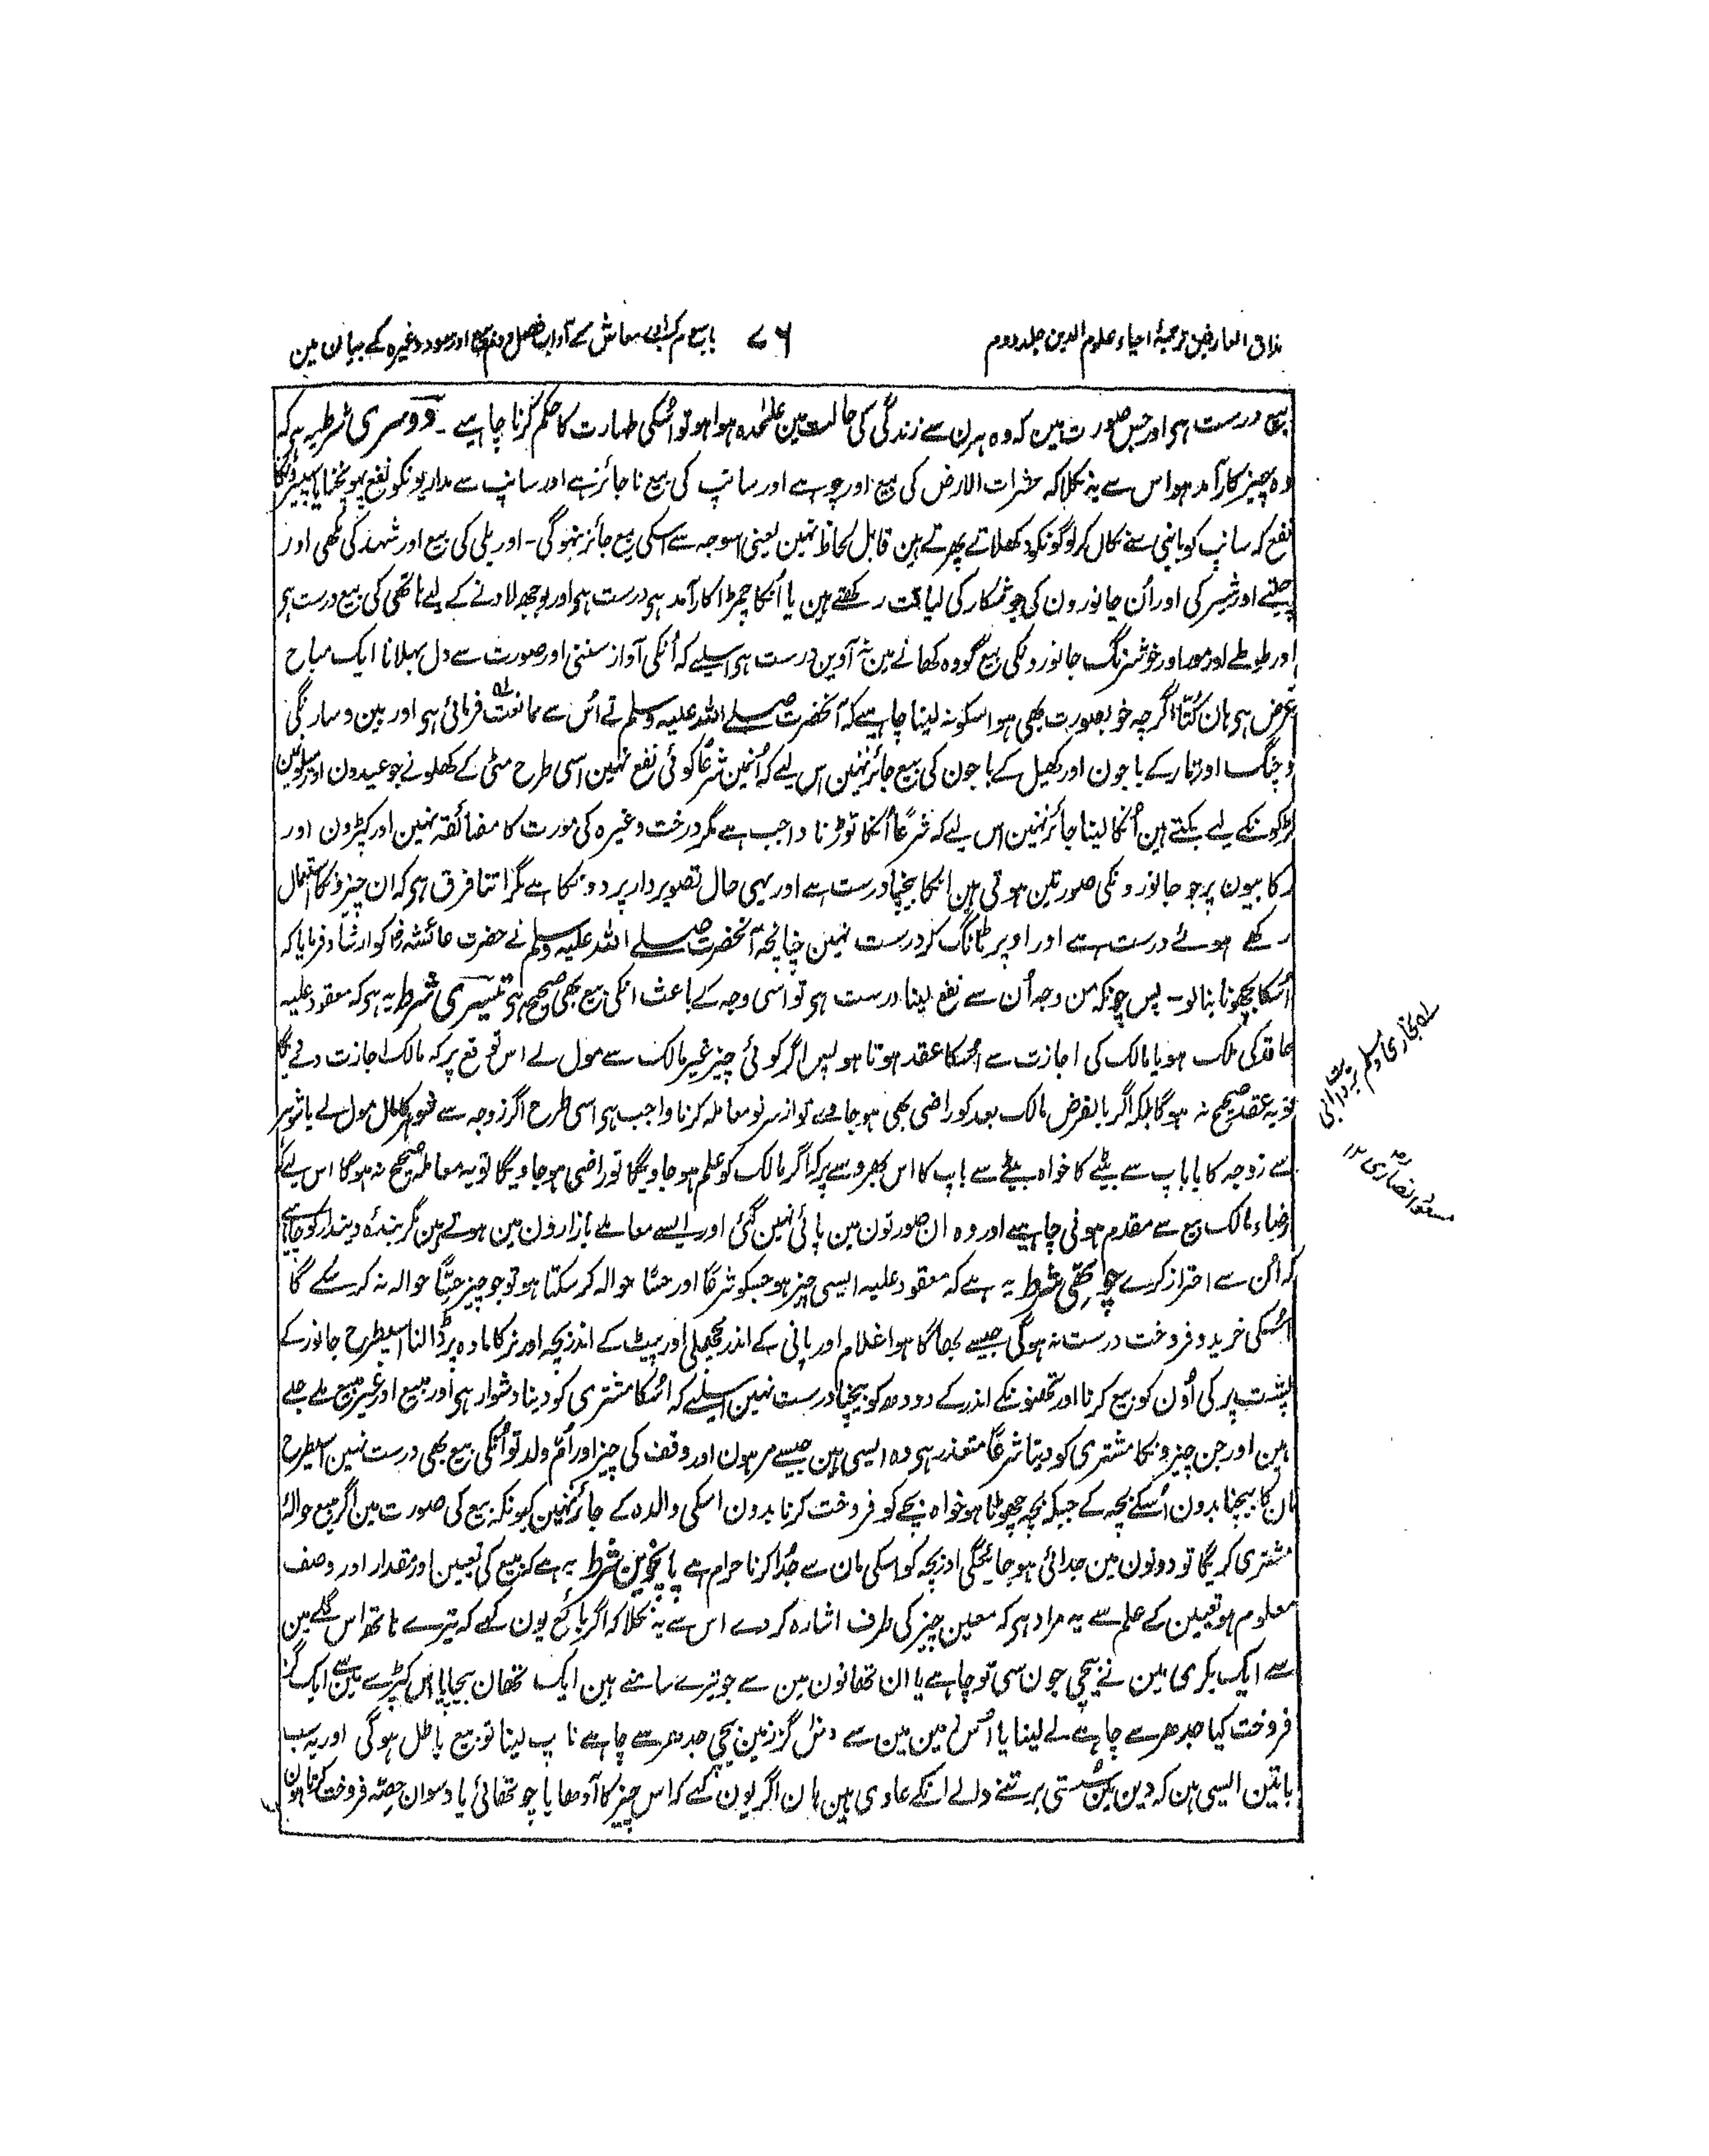 مذاق العارفین ترجمۂ احیاء علوم الدین جلد دوم
۷۶
باب کسب معاش کے آداب فصل بیع اور سود وغیرہ کے بیان مین
بیع درست ہی اور جس صورت مین کہ وہ ہرن سے زندگی کی حالت مین علٰحدہ ہوا ہو تو اُسکی طہارت کا حکم کرنا چاہیے ۔ دوسری شرط یہ ہی کہ
وہ چیز کارآمد ہو اس سے یہ نکلا کہ حشرات الارض کی بیع اور چوہے اور سانپ کی بیع ناجائز ہے اور سانپ سے مداریونکو نفع پہونچنا یا سپیرونکا
نفع کہ سانپ کو بانبی سے نکال کر لوگونکو دکھلاتے پھرتے ہین قابل لحاظ نہین یعنی اسوجہ سے اسکی بیع جائز نہوگی ۔ اور بلی کی بیع اور شہد کی مکھی اور
چیتے اور شیر کی اور اُن جانورون کی جو شکار کی لیاقت رکھتے ہین یا اُنکا چمڑا کارآمد ہی درست ہی اور بوجھ لادنے کے لیے ہاتھی کی بیع درست ہی
اور طوطے اور مور اور خوشرنگ جانورونکی بیع گو وہ کھانے مین نہ آوین درست ہی اسلیے کہ اُنکی آواز سننی اور صورت سے دل بہلانا ایک مباح
غرض ہی ہان کُتّا اگرچہ خوبصورت بھی ہو اسکو نہ لینا چاہیے کہ آنحضرت صلے اللہ علیہ وسلم نے اُس سے ممانعت فرمائی ہی اور بین و سارنگی
و چنگ اور تار کے باجون اور کھیل کے باجون کی بیع جائز نہین اس لیے کہ اُنمین شرعًا کوئی نفع نہین اسی طرح مٹی کے کھلونے جو عیدون اور میلونمین
لڑکونکے لیے بکتے ہین اُنکا لینا جائز نہین اس لیے کہ شرعًا اُنکا توڑنا واجب ہے مگر درخت وغیرہ کی مورت کا مضائقہ نہین اور کپڑون اور
رکابیون پر جو جانورونکی صورتین ہوتی ہین انکا بیچنا درست ہے اور یہی حال تصویردار پردونکا ہے مگر اتنا فرق ہی کہ ان چیزونکا استعمال
رکھے ہوئے درست ہے اور اوپر ٹانگ کر درست نہین چنانچہ آنحضرت صلے اللہ علیہ وسلم نے حضرت عائشہ رض کو ارشاد فرمایا کہ
اُسکا بچھونا بنا لو ۔ پس چونکہ من وجہ اُن سے نفع لینا درست ہی تو اسی وجہ کے باعث انکی بیع بھی صحیح ہی تیسری شرط یہ ہی کہ معقود علیہ
عاقد کی ملک ہو یا مالک کی اجازت سے اُسکا عقد ہوتا ہو پس اگر کوئی چیز غیر مالک سے مول لے اس توقع پر کہ مالک اجازت دے گا
تو یہ عقد صحیح نہ ہوگا بلکہ اگر بالفرض مالک بعد کو راضی بھی ہو جاوے تو از سر نو معاملہ کرنا واجب ہی اسی طرح اگر زوجہ سے شوہر کا مال مول لے یا شوہر
سے زوجہ کا یا باپ سے بیٹے کا خواہ بیٹے سے باپ کا اس بھروسے پر کہ اگر مالک کو علم ہو جاویگا تو راضی ہو جاویگا تو یہ معاملہ صحیح نہ ہوگا اس لیے کہ
رضاء مالک بیع سے مقدم ہونی چاہیے اور وہ ان صورتون مین پائی نہین گئی اور ایسے معاملے بازارون مین ہوتے ہین مگر بندۂ دیندار کو چاہیے
کہ اُن سے احتراز کرے چوتھی شرط یہ ہے کہ معقود علیہ ایسی چیز ہو جسکو شرعًا اور حسًّا حوالہ کر سکتا ہو تو جو چیز حسًّا حوالہ نہ کر سکے گا
اُسکی خرید و فروخت درست نہ ہوگی جیسے بھاگا ہوا غلام اور پانی کے اندر مچھلی اور پیٹ کے اندر بچہ اور نر کا مادہ پر ڈالنا اسیطرح جانور کے
پشت پر کی اُون کو بیع کرنا اور تھنونکے اندر کے دودھ کو بیچنا درست نہین اسلیے کہ اُسکا مشتری کو دینا دشوار ہی اور مبیع اور غیر مبیع ملے جلے
ہین اور جن چیزونکا مشتری کو دینا شرعًا متعذر ہی وہ ایسی ہین جیسے مرہون اور وقف کی چیز اور اُمّ ولد تو اُنکی بیع بھی درست نہین اسیطرح
مان کا بیچنا بدون اُسکے بچہ کے جبکہ بچہ چھوٹا ہو خواہ بچے کو فروخت کرنا بدون اسکی والدہ کے جائز نہین کیونکہ بیع کی صورت مین اگر مبیع حوالۂ
مشتری کریگا تو دونون مین جدائی ہو جائیگی اور بچہ کو اسکی مان سے جُدا کرنا حرام ہے پانچوین شرط یہ ہے کہ مبیع کی تعیین اور مقدار اور وصف
معلوم ہو تعیین کے علم سے یہ مراد ہی کہ معین چیز کی طرف اشارہ کر دے اس سے یہ نکلا کہ اگر بائع یون کہے کہ تیرے ہاتھ اس گلے مین
سے ایک بکری مین نے بیچی جون سی تو چاہے یا ان تھانون مین سے جو تیرے سامنے ہین ایک تھان بیچا یا اس کپڑے مین سے ایک گز
فروخت کیا جدھر سے چاہے لے لینا یا اُس زمین مین سے دس گز زمین بیچی جدھر سے چاہے ناپ لینا تو بیع باطل ہوگی اور یہ سب
باتین ایسی ہین کہ دین مین سُستی برتنے والے انکے عادی ہین ہان اگر یون کہے کہ اس چیز کا آدھا یا چوتھائی یا دسوان حصّہ فروخت کرتا ہون
بخاری و مسلم بروایت ابی
مسعود انصاری رض ۱۲